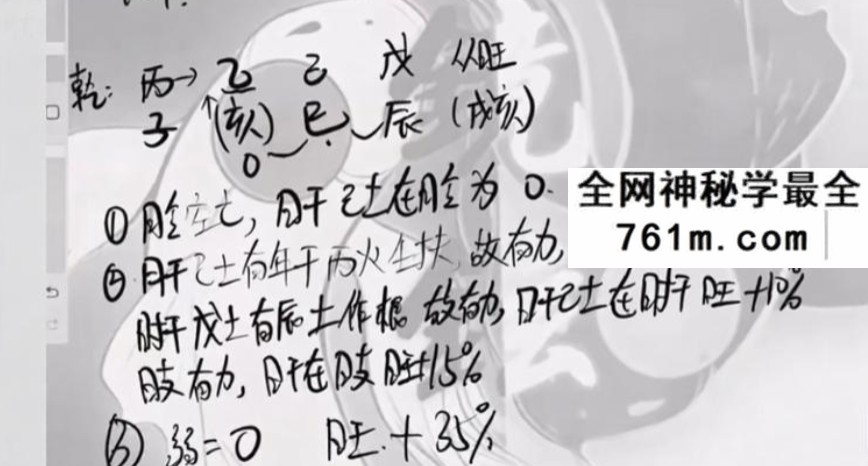 乾: 丙→ 乙 己 戊 从旺
子 (亥) 巳 辰 (戌亥)
0
① 月令空亡, 日干己土在月令为 0.
全网神秘学最全
761m.com
② 日干己土有年干丙火生扶 故有力,
时干戊土有辰土作根 故有力, 日干己土在时干旺+10%
日支有力, 日干在日支旺+15%
③ 弱=0 旺+35%